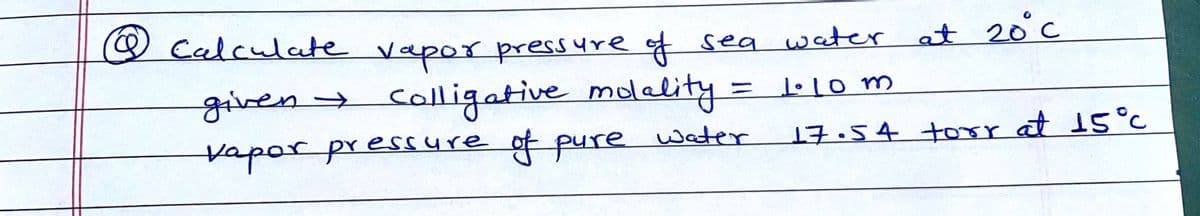 Q Calculate vapor pressure of sea water at 20°C
given → colligative molality = 1.10 m
vapor pressure of pure water 17.54 torr at 15°C